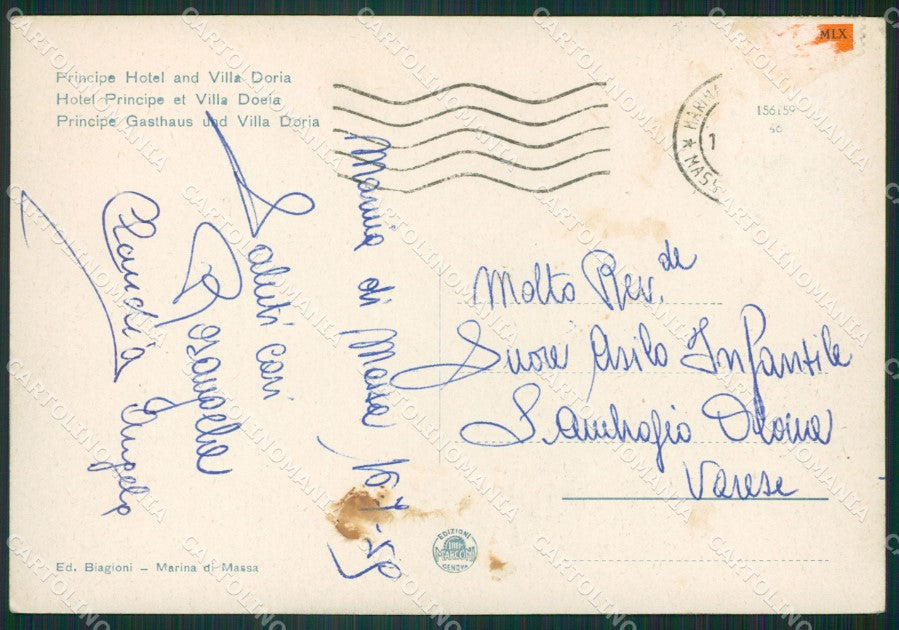 Principe Hotel and Villa Doria
Hotel Principe et Villa Doria
Principe Gasthaus und Villa Doria
MLX
156159
MARINA
* MASS
1
Marina di Massa, 16-7-59
Saluti cari
Rosanella
Claudia Angelo
Molto Rev.de
Suore Asilo Infantile
S. Ambrogio Olona
Varese
Ed. Biagioni – Marina di Massa
EDIZIONI
MARCONI
GENOVA
CARTOLINOMANIA